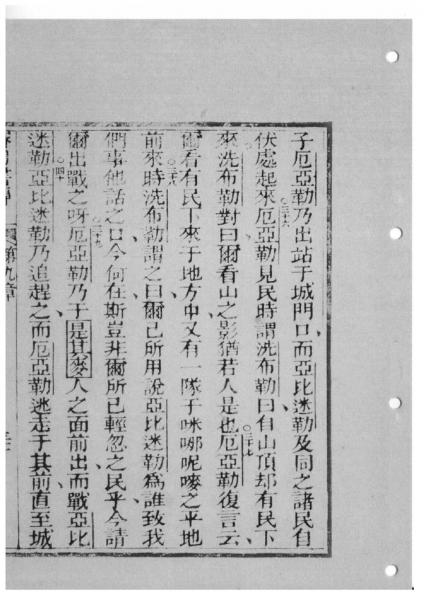 子厄亞勒乃出站于城門口而亞比迷勒及同之諸民自
伏處起來厄亞勒見民時謂洗布勒曰自山頂却有民下
○三十六
來洗布勒對曰爾看山之影猶若人是也厄亞勒復言云
○三十七
爾看有民下來于地方中又有一隊于咪哪呢嘜之平地
前來時洗布勒謂之曰爾己所用說亞比迷勒為誰致我
○三十八
們事他話之口今何在斯豈非爾所已輕忽之民乎今請
爾出戰之呀厄亞勒乃于是其麥人之面前出而戰亞比
○三十九
迷勒亞比迷勒乃追趕之而厄亞勒逃走于其前直至城
○四十
第九章